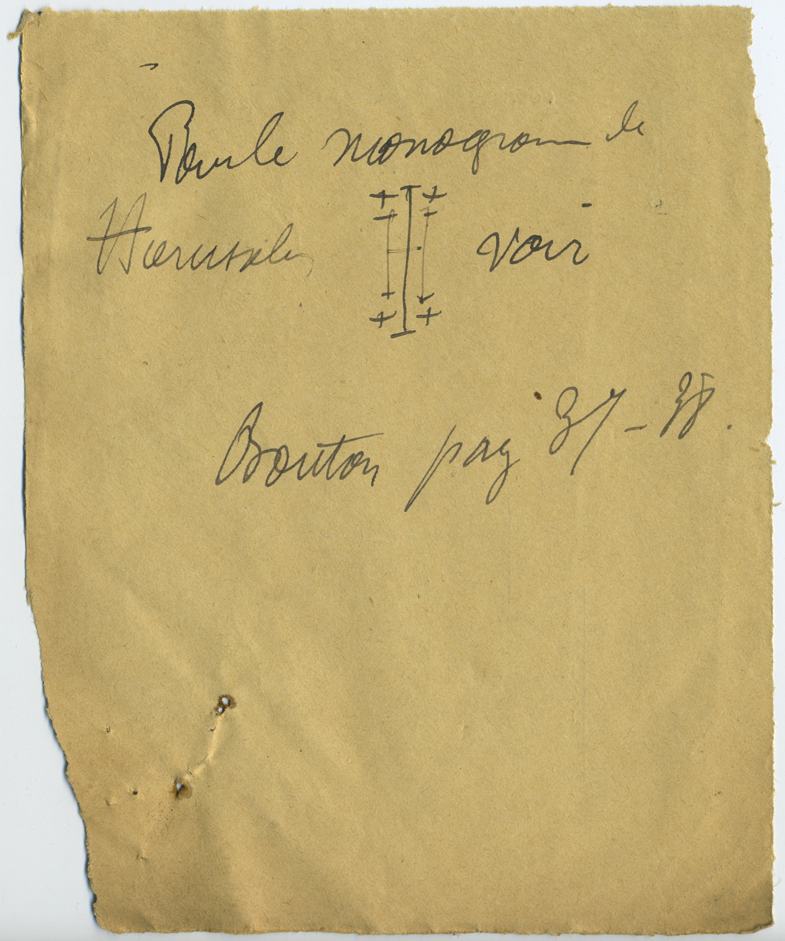 Pour le monogram de
Hierusalem voir
Bouton pag 37-38.